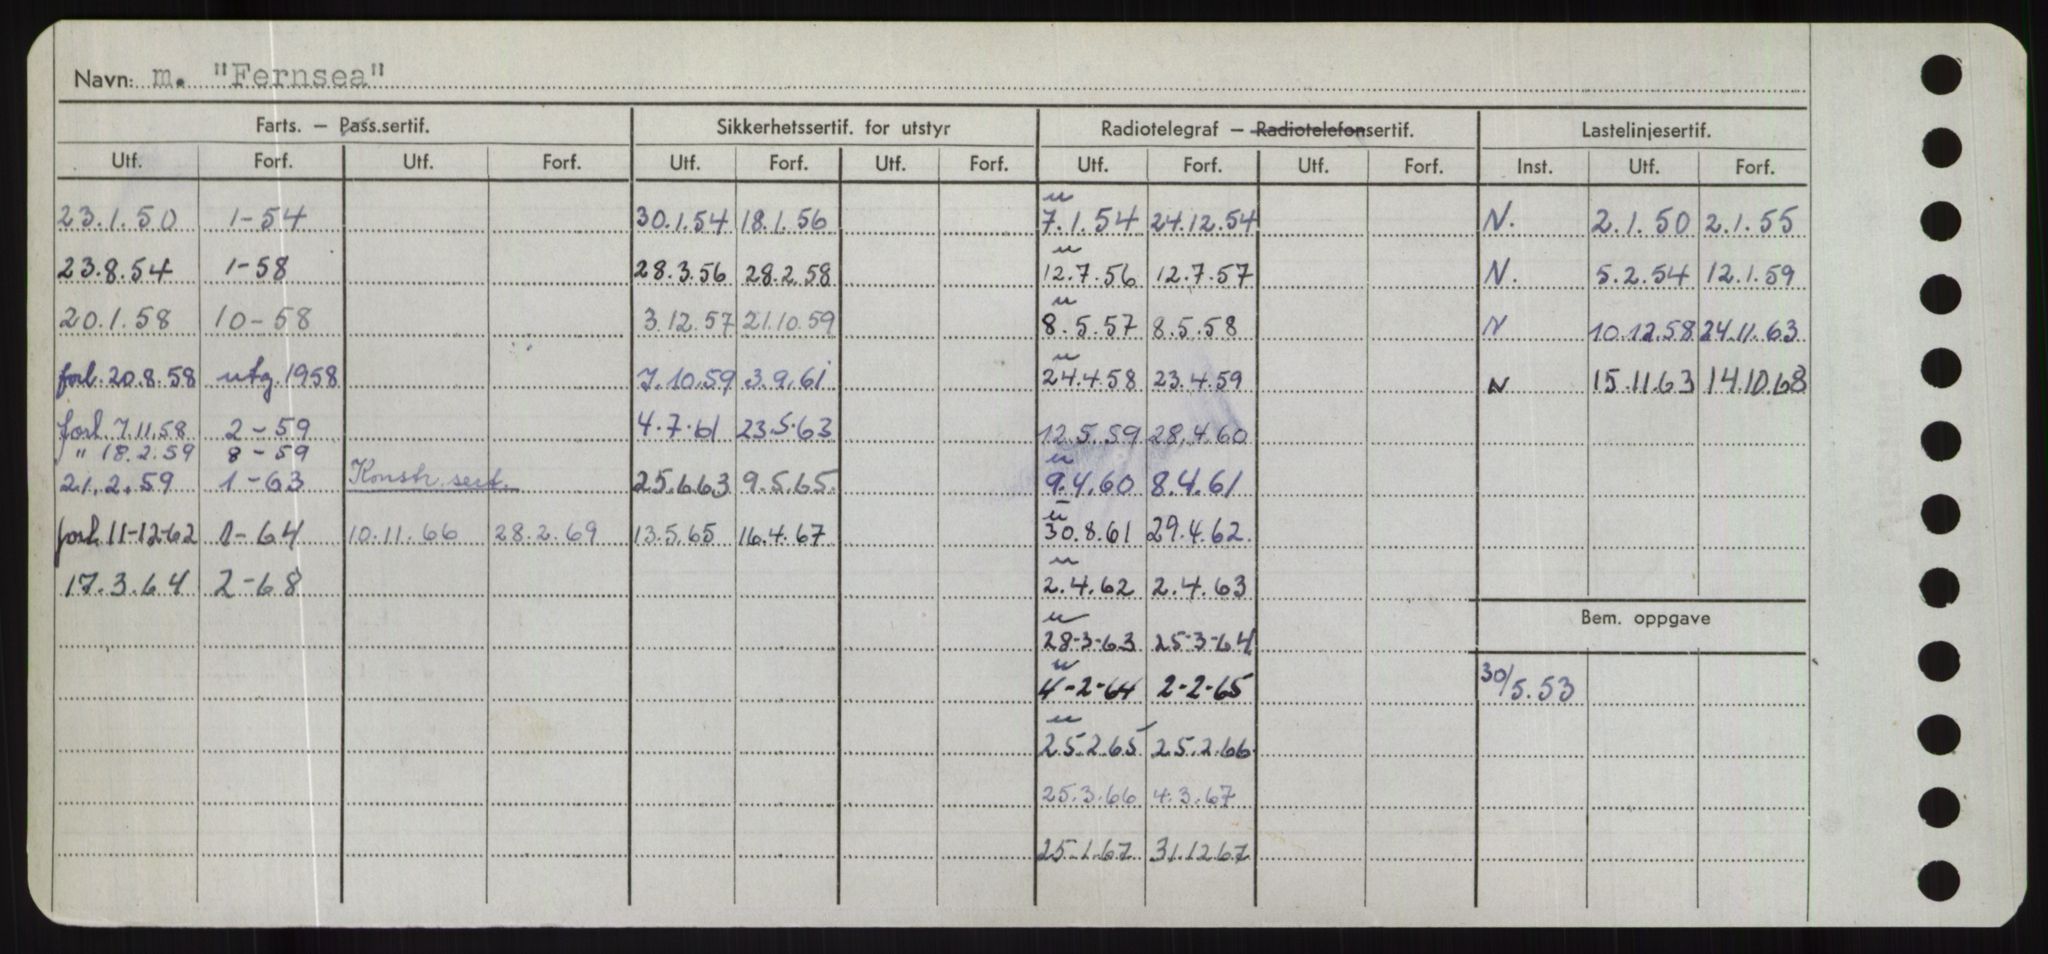 Navn: m. "Fernsea"
Farts. – Pass.sertif. Sikkerhetssertif. for utstyr Radiotelegraf – Radiotelefonsertif. Lastelinjesertif.
Utf. Forf. Utf. Forf. Utf. Forf. Utf. Forf. Utf. Forf. Utf. Forf. Inst. Utf. Forf.
u
23.1.50 1-54 30.1.54 18.1.56 7.1.54 24.12.54 N. 2.1.50 2.1.55
u
23.8.54 1-58 28.3.56 28.2.58 12.7.56 12.7.57 N. 5.2.54 12.1.59
u
20.1.58 10-58 3.12.57 21.10.59 8.5.57 8.5.58 N 10.12.58 24.11.63
u
forl. 20.8.58 utg. 1958 7.10.59 3.9.61 24.4.58 23.4.59 N 15.11.63 14.10.68
forl. 7.11.58 2-59 4.7.61 23.5.63 12.5.59 28.4.60
" 18.2.59 8-59
u
21.2.59 1-63 Konstr. sert. 25.6.63 9.5.65. 9.4.60 8.4.61
u
forl. 11-12-62 1-64 10.11.66 28.2.69 13.5.65 16.4.67 30.8.61 29.4.62.
u
17.3.64 2-68 2.4.62 2.4.63
Bem. oppgave
u
28-3-63 25-3-64
u
4-2-64 2-2-65 30/5.53
u
25.2.65 25.2.66
25.3.66 4.3.67
25.1.67 31.12.67